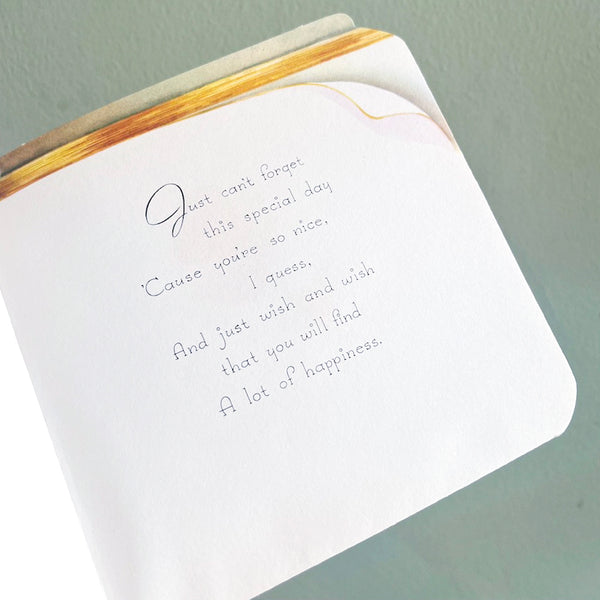 Just can't forget
this special day
'Cause you're so nice,
I guess,
And just wish and wish
that you will find
A lot of happiness.